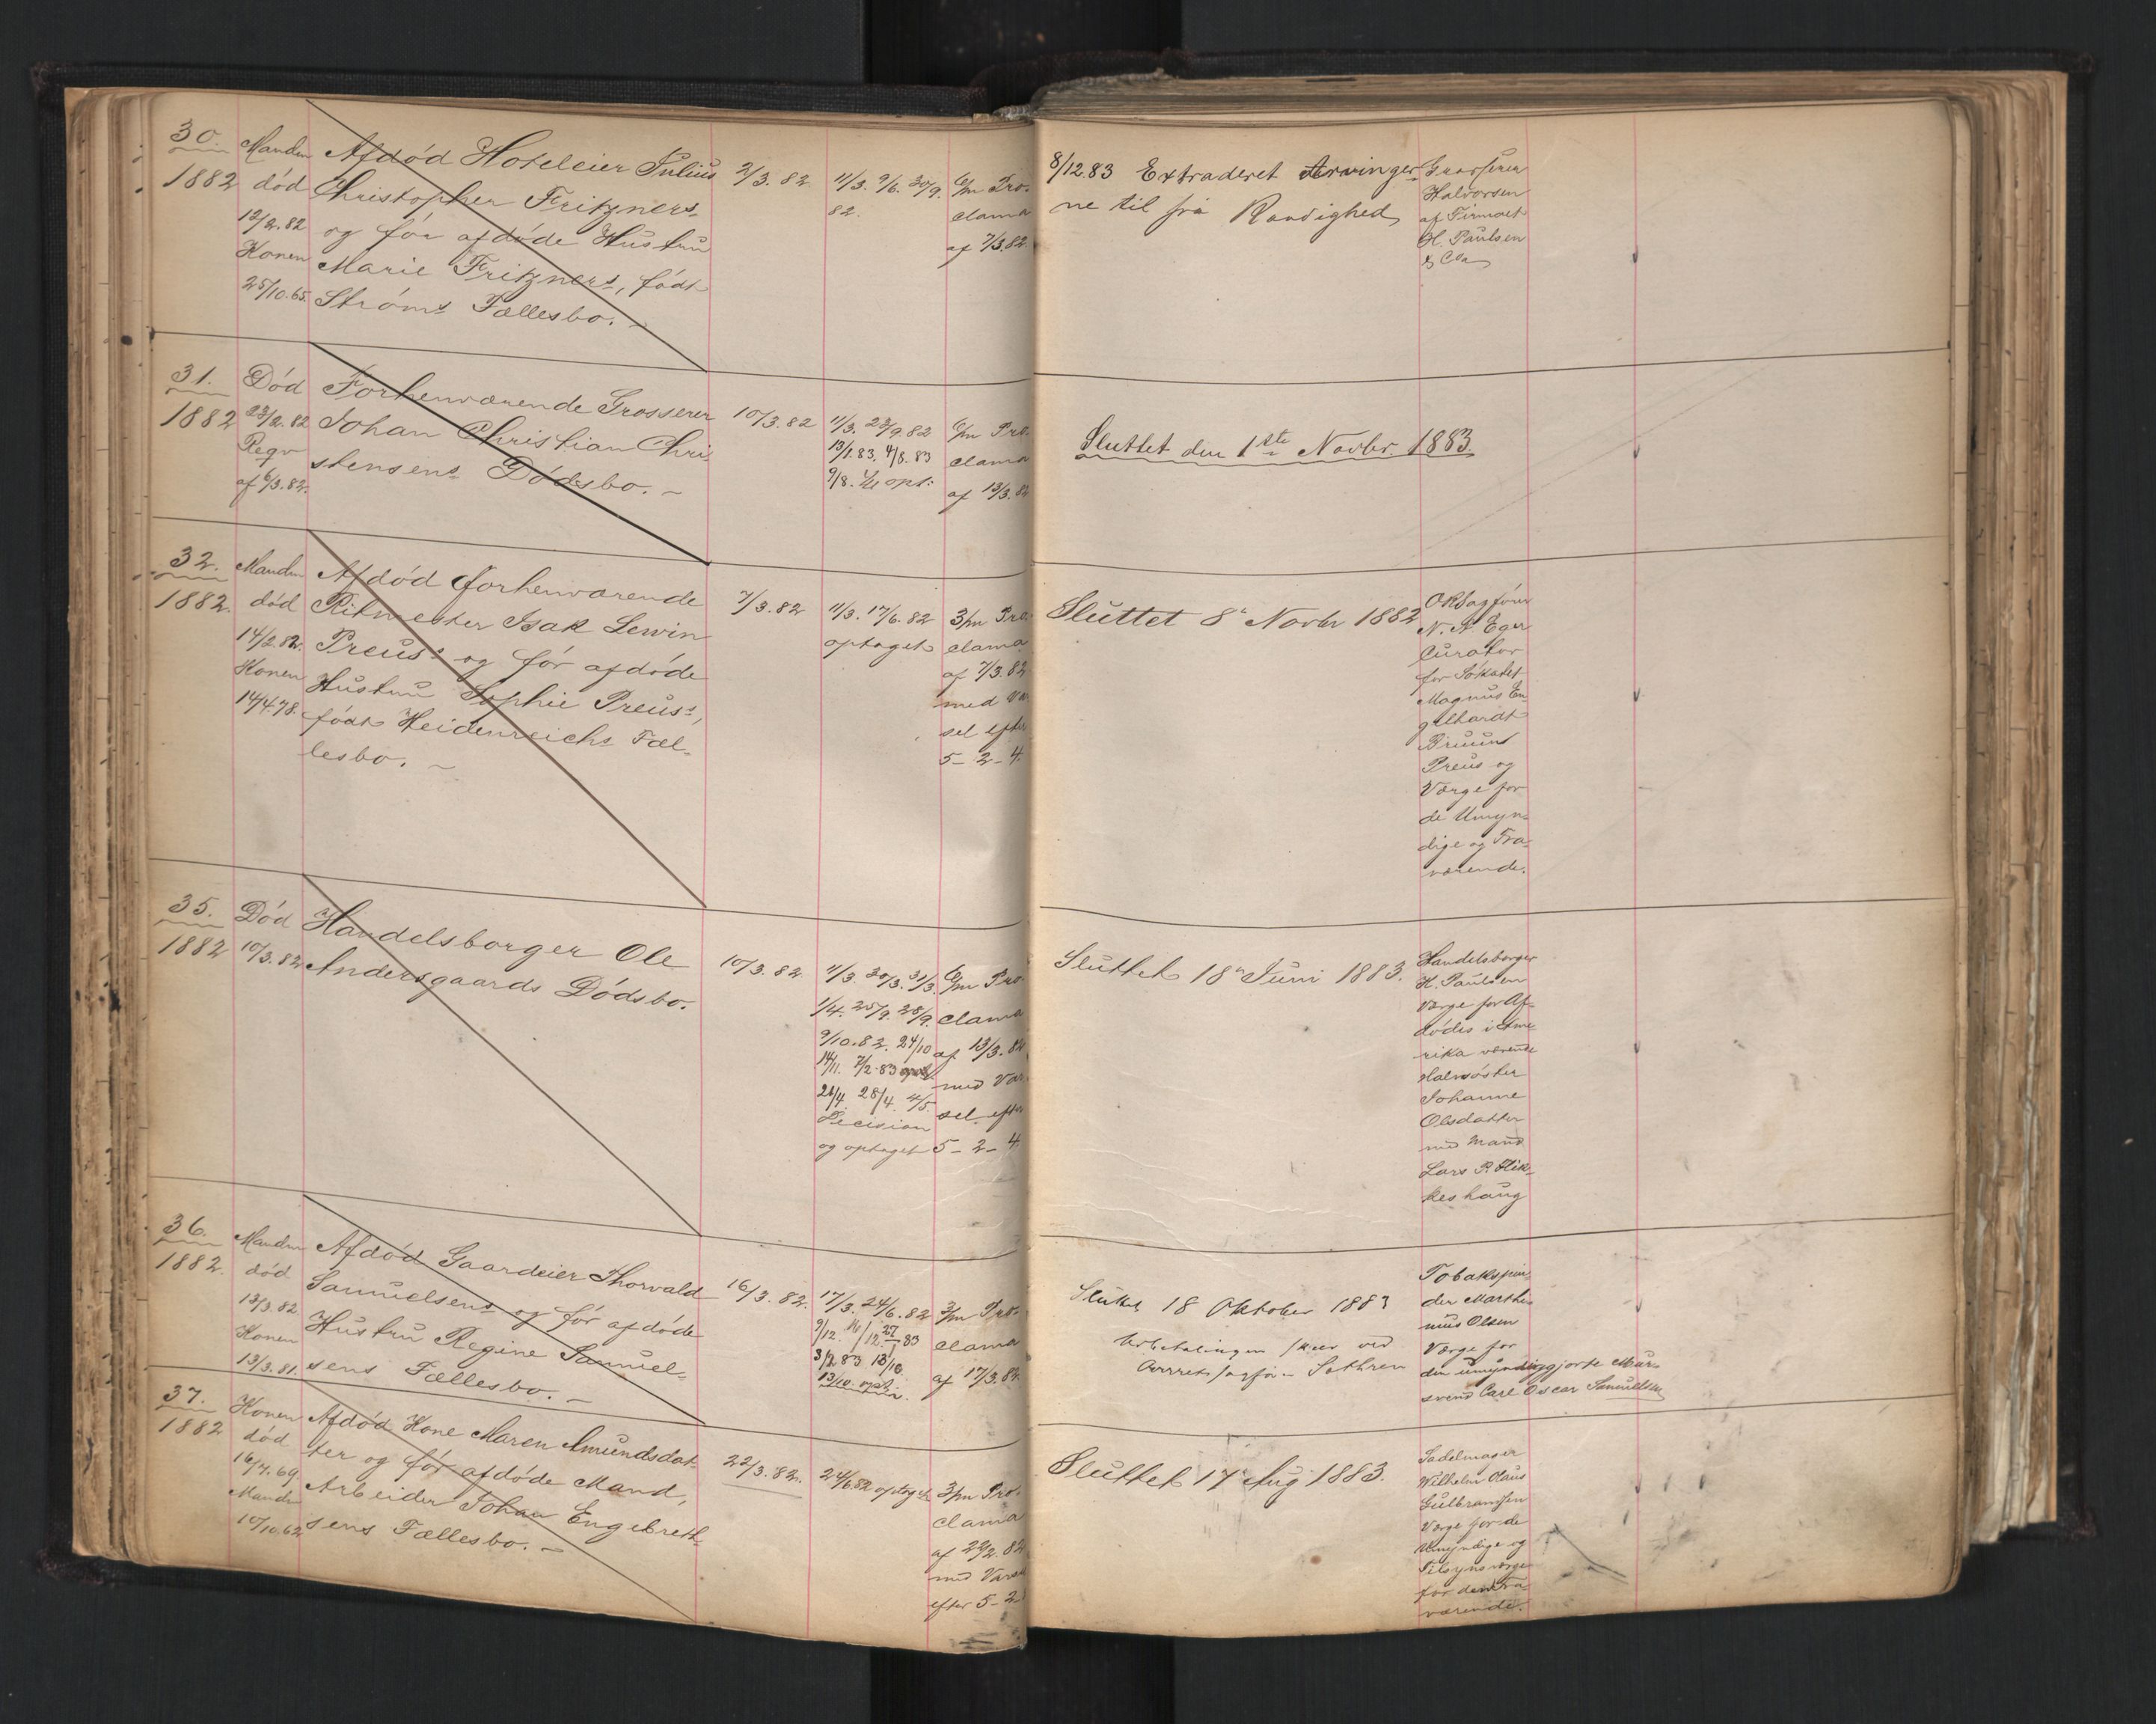 30.
1882
Manden
død
12/2.82
Konen
25/10.65.
Afdød Hoteleier Julius
Christopher Fritzners
og før afdøde Hustru
Marie Fritzners, født
Strøms Fællesbo.
2/3. 82
11/3. 9/6. 30/9.
82.
6/m Pro-
clama
af 7/3.82.
8/12.83 Extraderet Arvinger-
ne til fri Raadighed
Grosserer
Halvorsen
af Firmaet
H. Paulsen
& Co
31.
1882
Død
23/2.82
Regv
af 6/3.82.
Forhenværende Grosserer
Johan Christian Chri-
stensens Dødsbo.
10/3.82
11/3. 23/9.82
13/1.83. 4/8.83
9/8.
6/m Pro-
clama
af 13/3.82
Sluttet den 1ste Novbr. 1883.
32.
1882.
Manden
død
14/2.82.
Konen
14/4.78.
Afdød forhenværende
Ritmester Isak Lewin
Preus's og før afdøde
Hustru Sophie Preus's,
født Heidenreichs Fæl-
lesbo.
7/3.82
11/3. 17/6.82
optaget
3/m Pro-
clama
af 7/3.82
med Var-
sel efter
5-2-4.
Sluttet 8de Novbr 1882
ORSagfører
N. A. Eger
Curator
for Søkadet
Magnus En-
gelhardt
Bruun
Preus og
Værge for
de Umyn-
dige og Fra-
værende.
35.
1882
Død
10/3.82
Handelsborger Ole
Andersgaards Dødsbo.
10/3.82
11/3. 30/3. 31/3.
1/4. 25/9. 28/9.
9/10.82. 24/10
14/11. 7/2.83
21/4 28/4. 4/5.
Decision
og optaget
6/m Pro-
clama
af 13/3.82
med Var-
sel efter
5-2-4.
Sluttet 18de Juni 1883.
Handelsborger
H. Paulsen
Værge for Af-
dødes i Ame
rika værende
Halvsøster
Johanne
Olsdatter
med Mand
Lars P. Hik-
keshaug
36.
1882.
Manden
død
13/3.82
Konen
13/3.81.
Afdød Gaardeier Thorvald
Samuelsens og før afdøde
Hustru Regine Samuel-
sens Fællesbo.
16/3.82.
17/3. 24/6.82
9/12.
3/2 83 13/10
13/10
3/m Pro-
clama
af 17/3.82.
Sluttet 18 Oktober 1883
Udbetalingen skeer ved
Overretssagfør. Sethren
Tobakspin-
der Marthi-
nius Olsen
Værge for
den umyndiggjorte Mur-
svend Carl Oscar Samuelsen
37.
1882
Konen
død
16/7.69.
Manden
10/10.62
Afdød Kone Maren Amundsdat-
ter og før afdøde Mand,
Arbeider Johan Engebreth-
sens Fællesbo.
22/3.82.
24/6.82 optaget
3/m Pro-
clama
af 22/2.82
med Varsel
efter 5-2-
Sluttet 17 Aug 1883.
Sadelmager
Wilhelm Claus
Gulbransen
Værge for de
Umyndige og
Tilsynsværge
for den Fra-
værende.